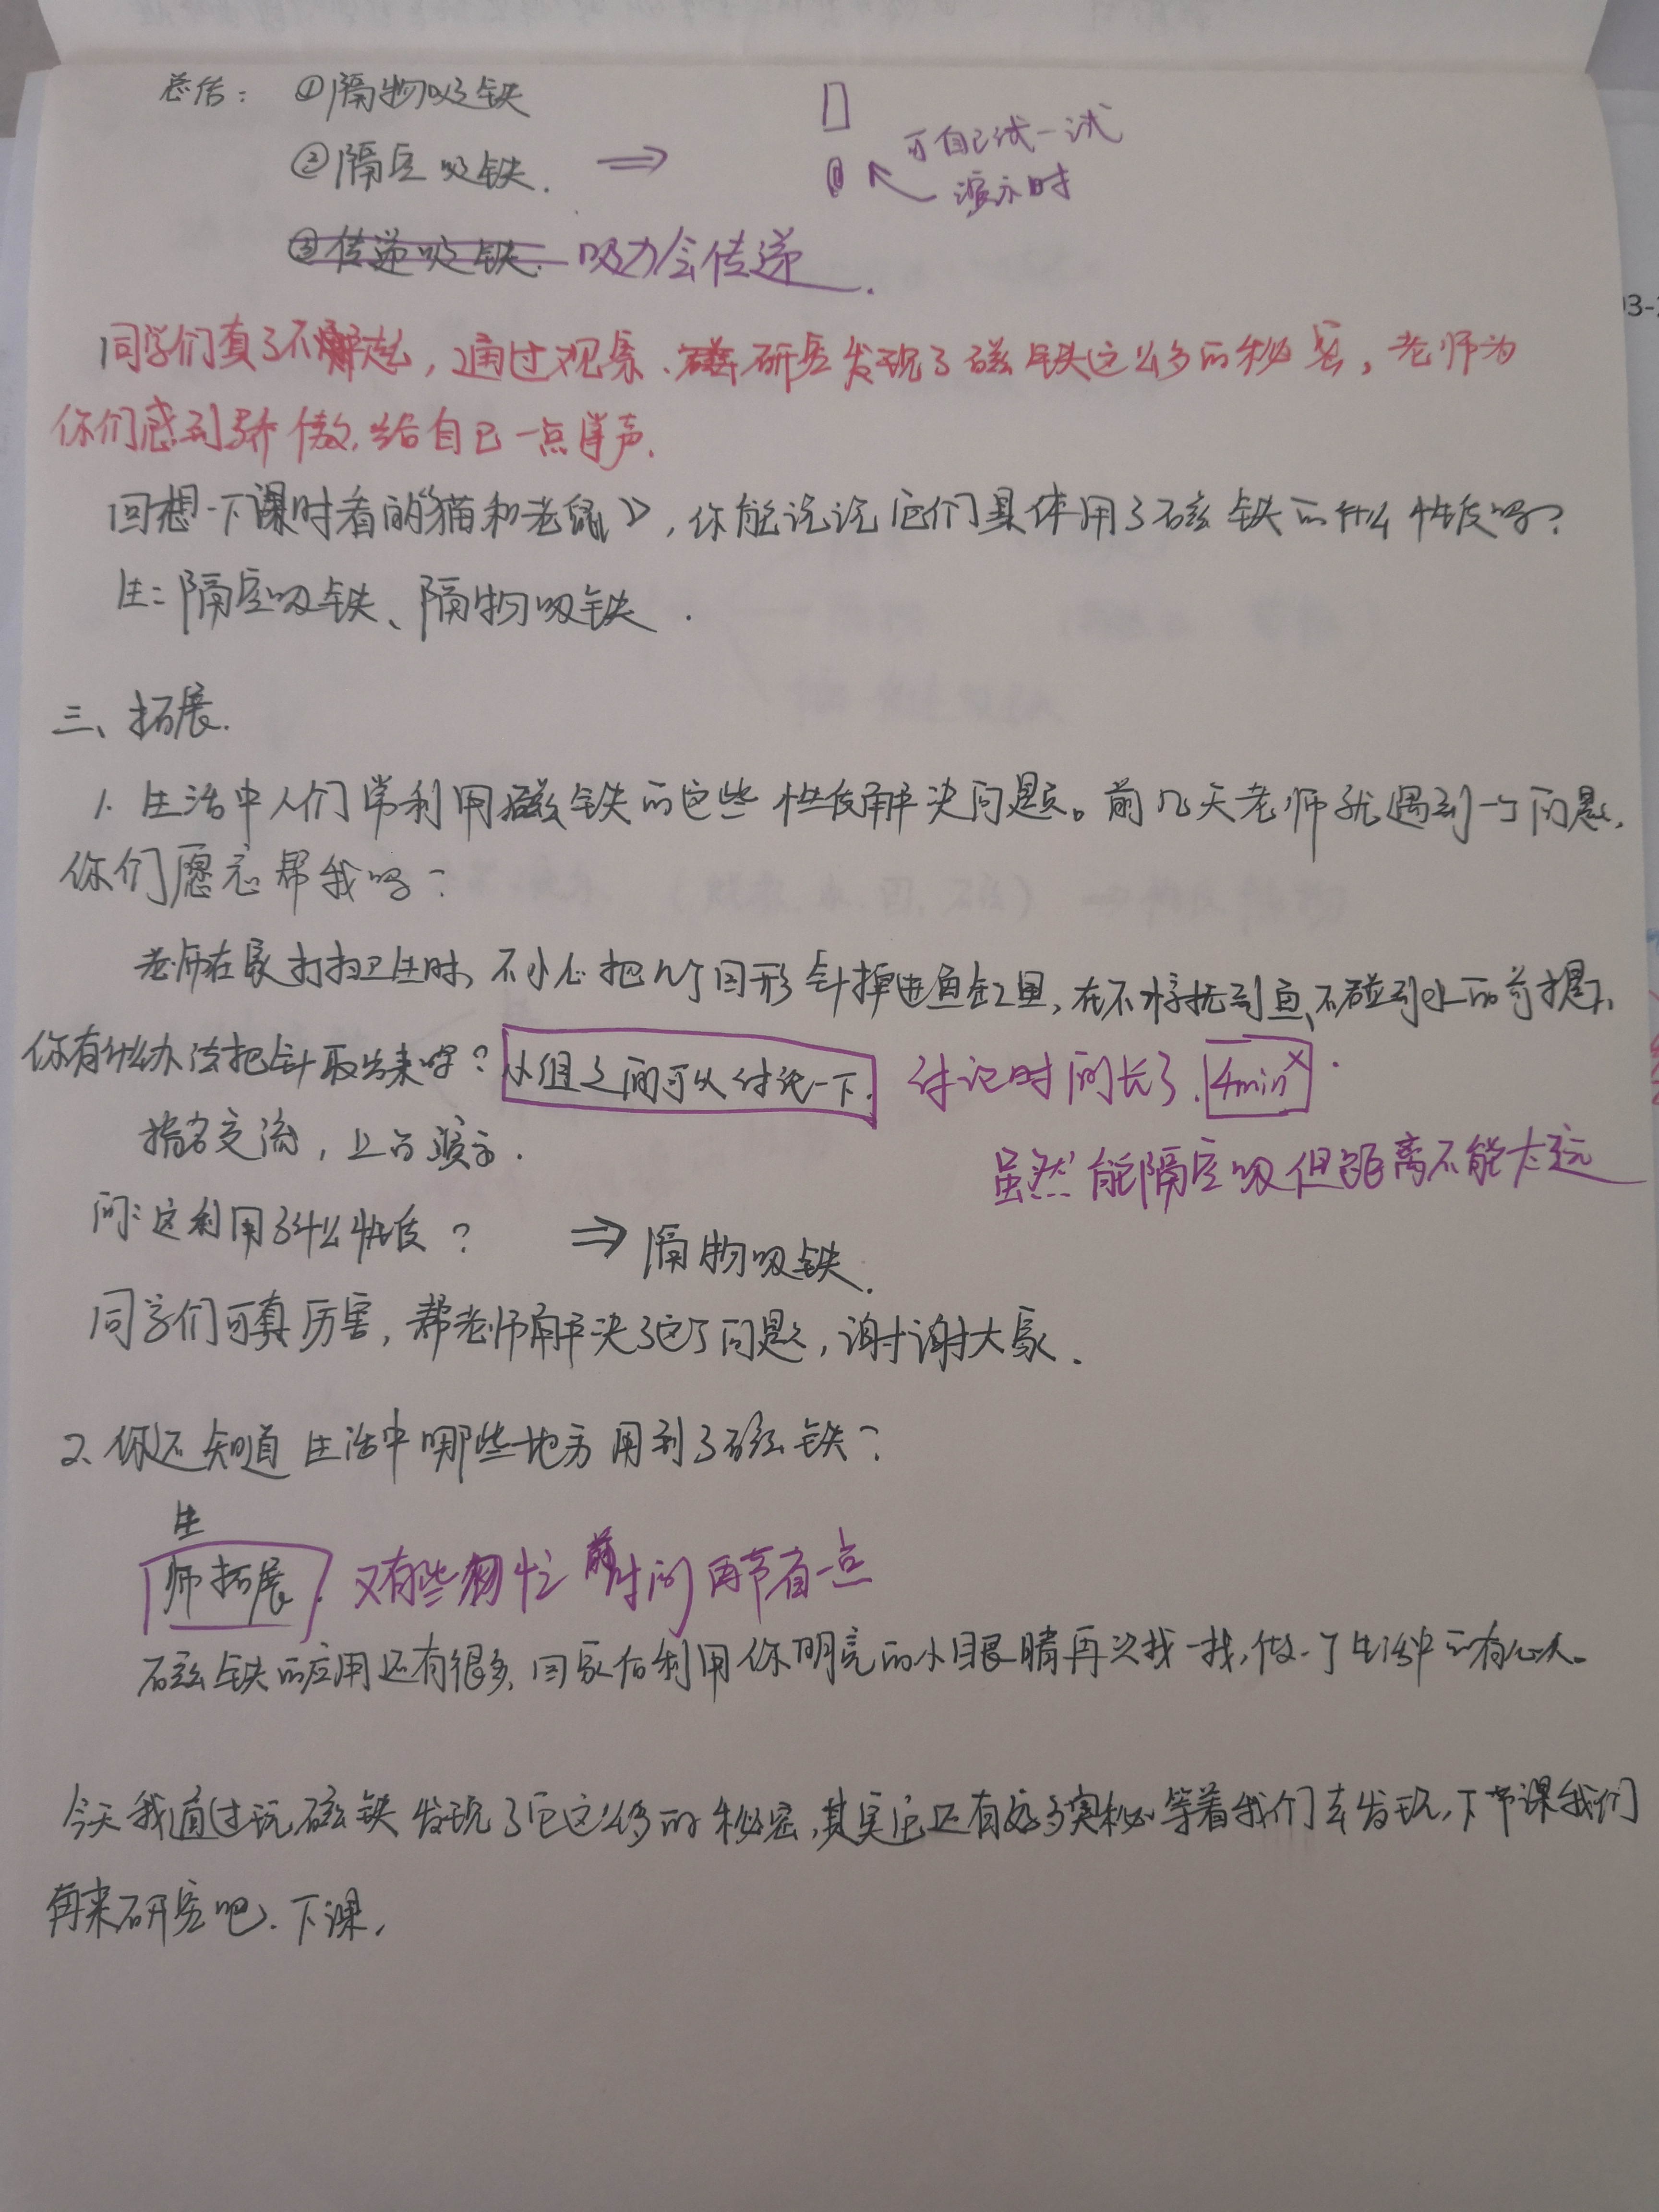 总结：①隔物吸铁
②隔空吸铁. ⇒ 可自己试一试
演示时
③传递吸铁. 吸力会传递.
同学们真了不起，通过观察、研究发现了磁铁这么多的秘密，老师为
你们感到骄傲，给自己一点掌声.
回想一下课时看的《猫和老鼠》，你能说说它们具体用了磁铁的什么性质吗？
生：隔空吸铁、隔物吸铁.
三、拓展.
1. 生活中人们常利用磁铁的这些性质解决问题。前几天老师就遇到一个问题，
你们愿意帮我吗？
老师在家打扫卫生时，不小心把几个回形针掉进鱼缸里，在不惊扰到鱼、不碰到水的前提下，
你有什么办法把针取出来呢？小组之间可以讨论一下. 讨论时间长了. 4min
指名交流，上台演示.
虽然能隔空吸但距离不能太远
问：这利用了什么性质？ ⇒ 隔物吸铁.
同学们可真厉害，帮老师解决了这个问题，谢谢大家.
2. 你还知道生活中哪些地方用到了磁铁？
生
师拓展. 又有些匆忙 前时间再节省一点
磁铁的应用还有很多，回家后利用你明亮的小眼睛再次找一找，做一个生活中的有心人。
今天我通过玩磁铁发现了它这么多的秘密，其实它还有好多奥秘等着我们去发现，下节课我们
再来研究吧. 下课.